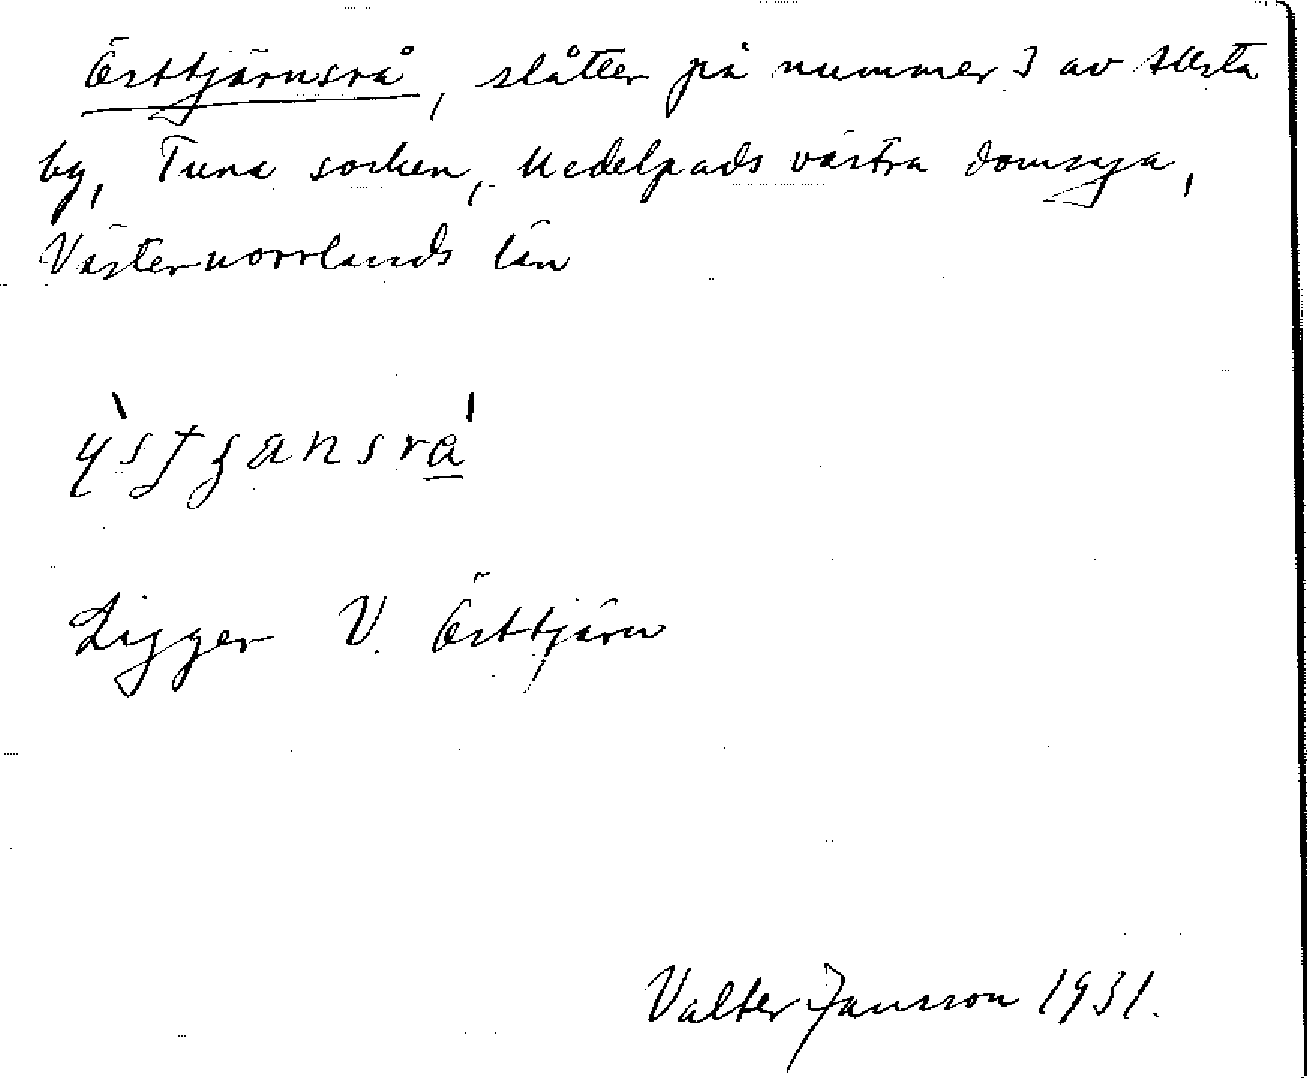 Östtjärnsrå, slåtter på nummer 3 av Allsta
by, Tuna socken, Medelpads västra domsaga,
Västernorrlands län
Ligger V. Östtjärn
Valter Jansson 1931.